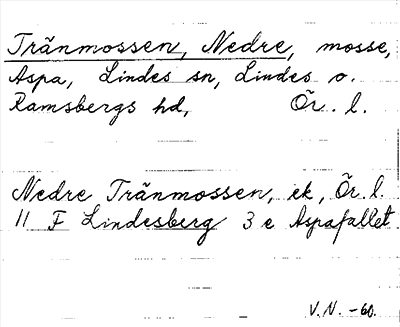 Tränmossen, Nedre, mosse,
Aspa, Lindes sn, Lindes o.
Ramsbergs hd, Ör. l.
Nedre Tränmossen, ek, Ör. l.
11 F Lindesberg 3 e Aspafallet
V.N. -60.